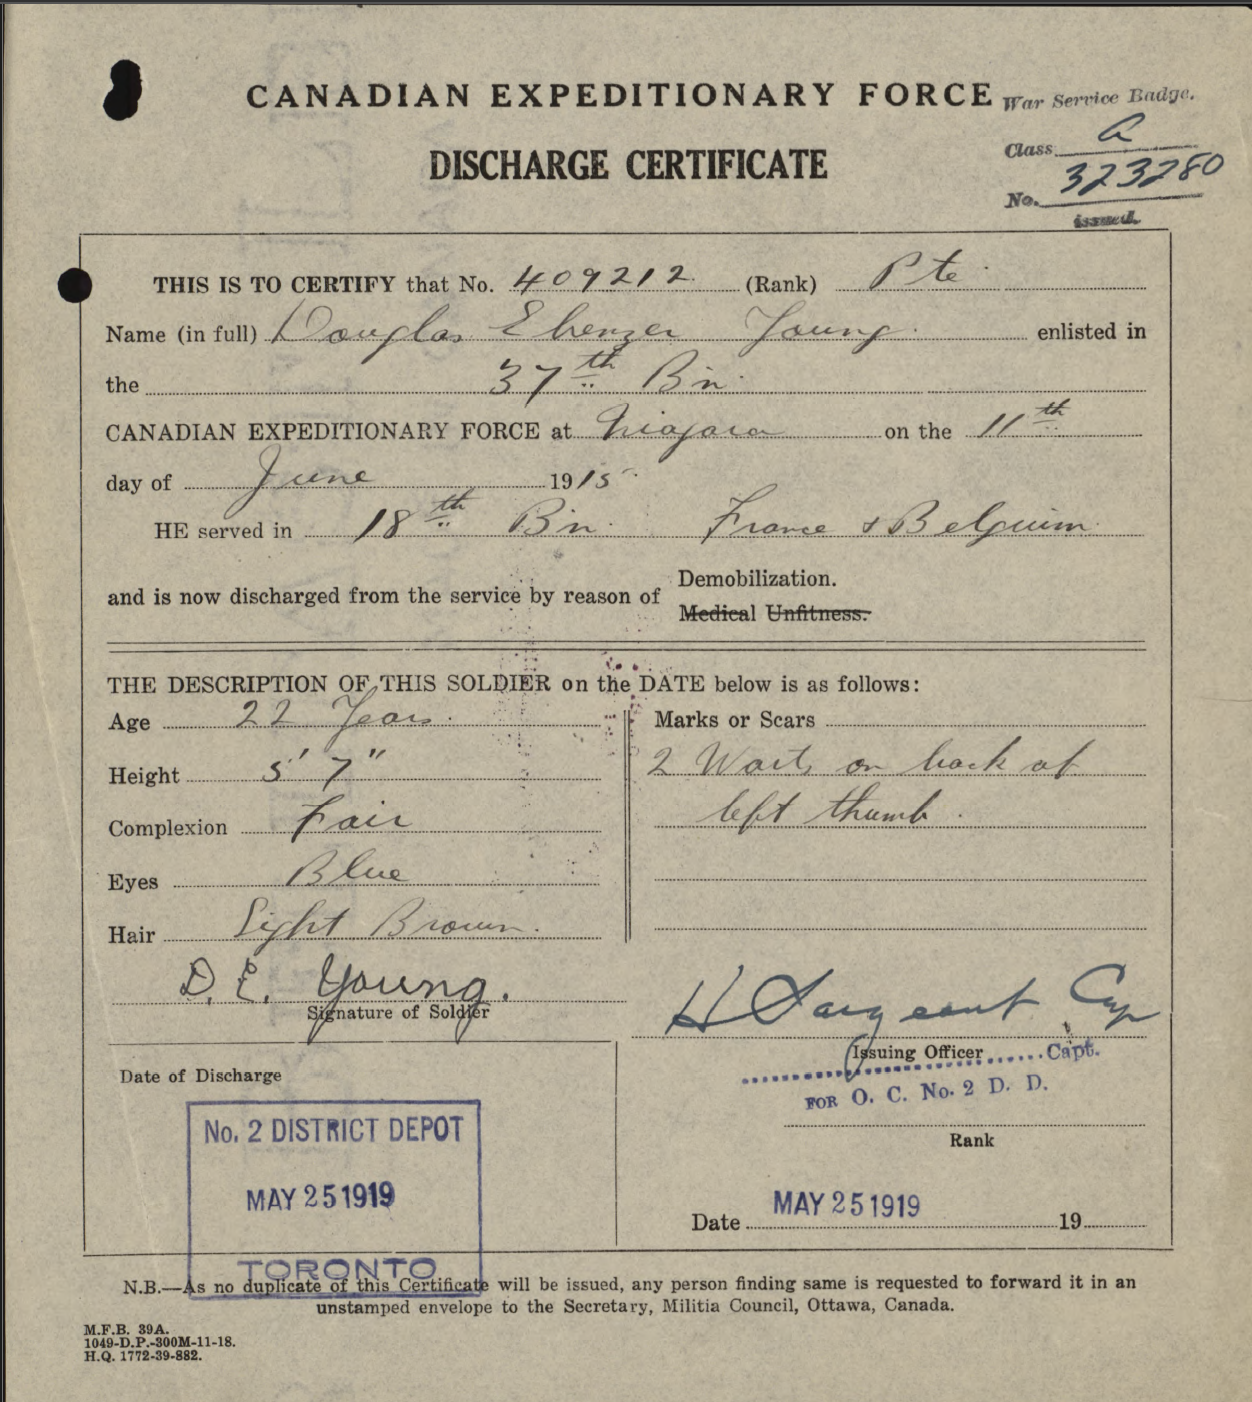 CANADIAN EXPEDITIONARY FORCE
War Service Badge.
DISCHARGE CERTIFICATE
Class A
No. 323280
issued.
THIS IS TO CERTIFY that No. 409212 (Rank) Pte
Name (in full) Douglas Ebenzer Young. enlisted in
the 37th Bn.
CANADIAN EXPEDITIONARY FORCE at Niagara on the 11th
day of June 1915
HE served in 18th Bn. France & Belguim.
and is now discharged from the service by reason of Demobilization.
Medical Unfitness.
THE DESCRIPTION OF THIS SOLDIER on the DATE below is as follows:
Age 22 Years.
Marks or Scars
Height 5' 7"
2 Warts on back of
Complexion Fair
left thumb.
Eyes Blue
Hair Light Brown.
D. E. Young.
Signature of Soldier
H Sargeant Cap
Issuing Officer Capt.
FOR O. C. No. 2 D. D.
Rank
Date of Discharge
No. 2 DISTRICT DEPOT
MAY 25 1919
TORONTO
Date MAY 25 1919 19
N.B.—As no duplicate of this Certificate will be issued, any person finding same is requested to forward it in an
unstamped envelope to the Secretary, Militia Council, Ottawa, Canada.
M.F.B. 39A.
1049-D.P.-300M-11-18.
H.Q. 1772-39-882.